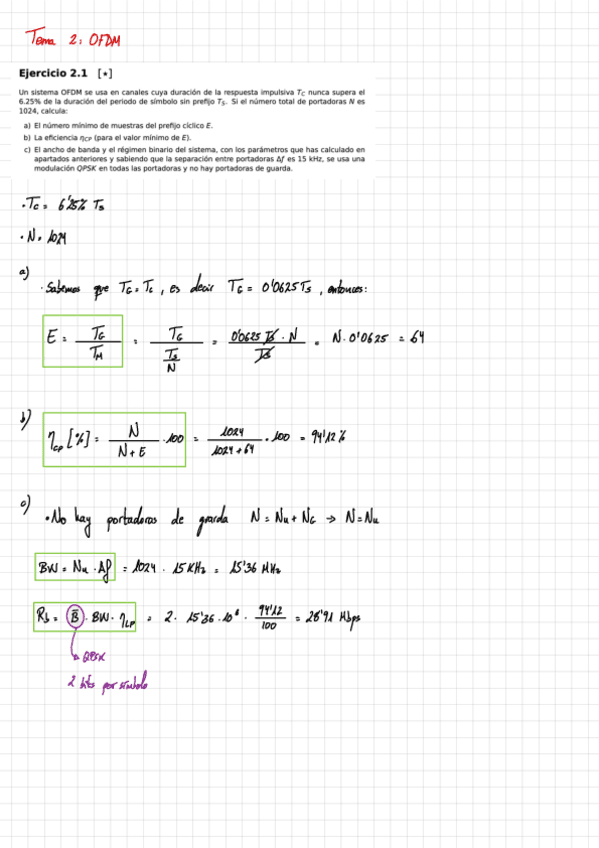 Tema 2: OFDM
Ejercicio 2.1 [⋆]
Un sistema OFDM se usa en canales cuya duración de la respuesta impulsiva T_C nunca supera el
6.25% de la duración del periodo de símbolo sin prefijo T_S. Si el número total de portadoras N es
1024, calcula:
a) El número mínimo de muestras del prefijo cíclico E.
b) La eficiencia η_CP (para el valor mínimo de E).
c) El ancho de banda y el régimen binario del sistema, con los parámetros que has calculado en
apartados anteriores y sabiendo que la separación entre portadoras Δf es 15 kHz, se usa una
modulación QPSK en todas las portadoras y no hay portadoras de guarda.
· T_C = 6'25% T_S
· N = 1024
a)
· Sabemos que T_G = T_C, es decir T_G = 0'0625 T_S, entonces:
E = T_G / T_M = T_G / (T_S / N) = 0'0625 T_S · N / T_S = N · 0'0625 = 64
b)
η_CP [%] = N / (N + E) · 100 = 1024 / (1024 + 64) · 100 = 94'12 %
c)
· No hay portadoras de guarda N = N_u + N_G → N = N_u
BW = N_u · Δf = 1024 · 15 KHz = 15'36 MHz
R_b = B · BW · η_CP = 2 · 15'36 · 10⁶ · 94'12 / 100 = 28'91 Mbps
QPSK
2 bits por símbolo